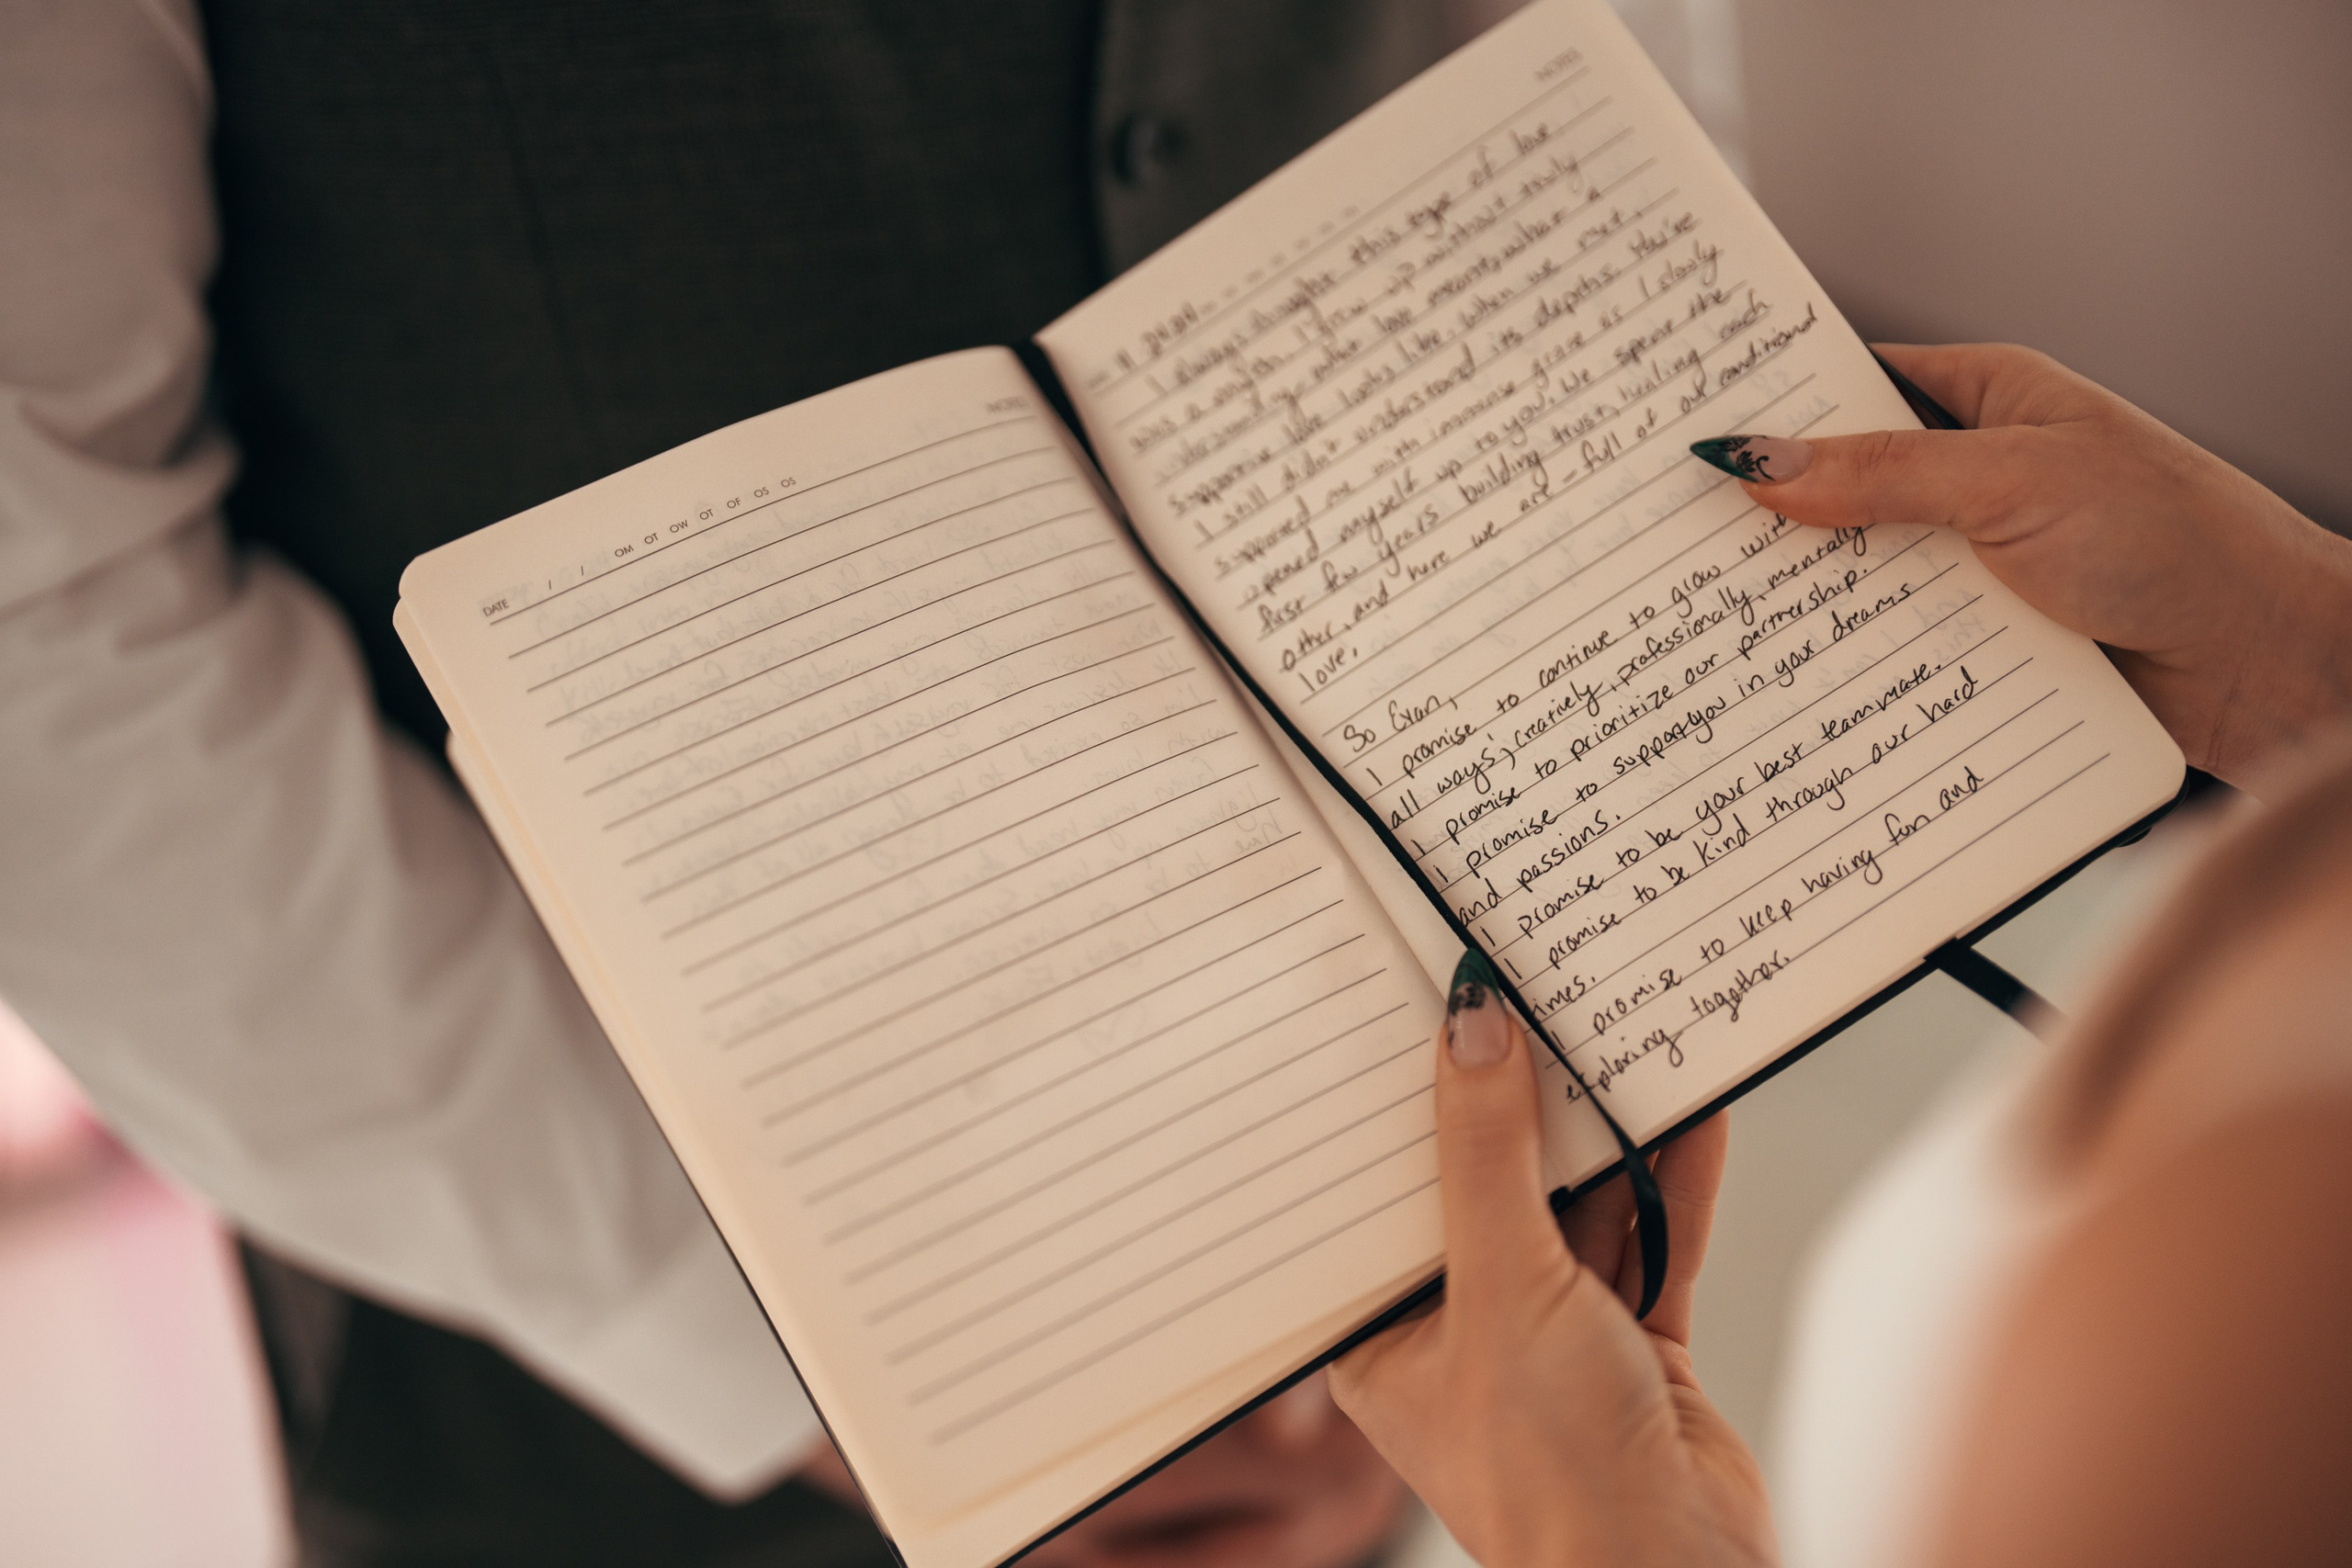 NOTES
DATE / / OM OT OW OT OF OS OS
NOTES
I always thought this type of love
was a myth. I grew up without truly
understanding what love means, what a
supportive love looks like. When we met,
I still didn't understand its depths. You're
supported me with immense grace as I slowly
opened myself up to you. We spent the
first few years building trust, healing each
other, and here we are - full of our conditional
love.
So Evan,
I promise to continue to grow with
all ways; creatively, professionally, mentally
I promise to prioritize our partnership.
I promise to support you in your dreams
and passions.
I promise to be your best teammate.
I promise to be kind through our hard
imes.
I promise to keep having fun and
exploring together.